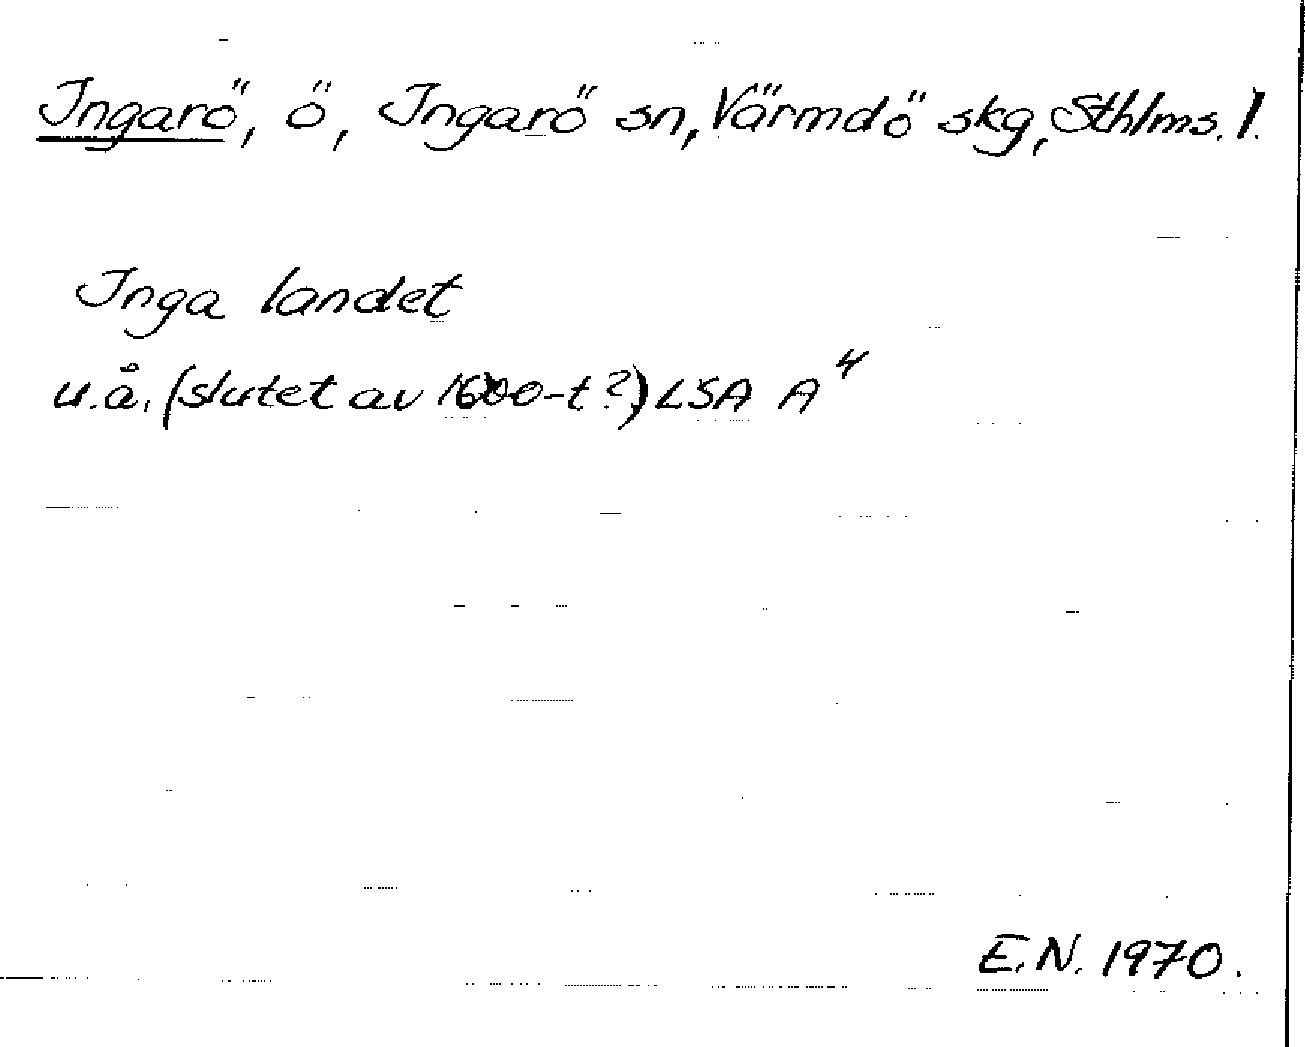 Ingarö, ö, Ingarö sn, Värmdö skg, Sthlms. l.
Inga landet
u.å. (slutet av 1600-t?) LSA A⁴
E.N. 1970.